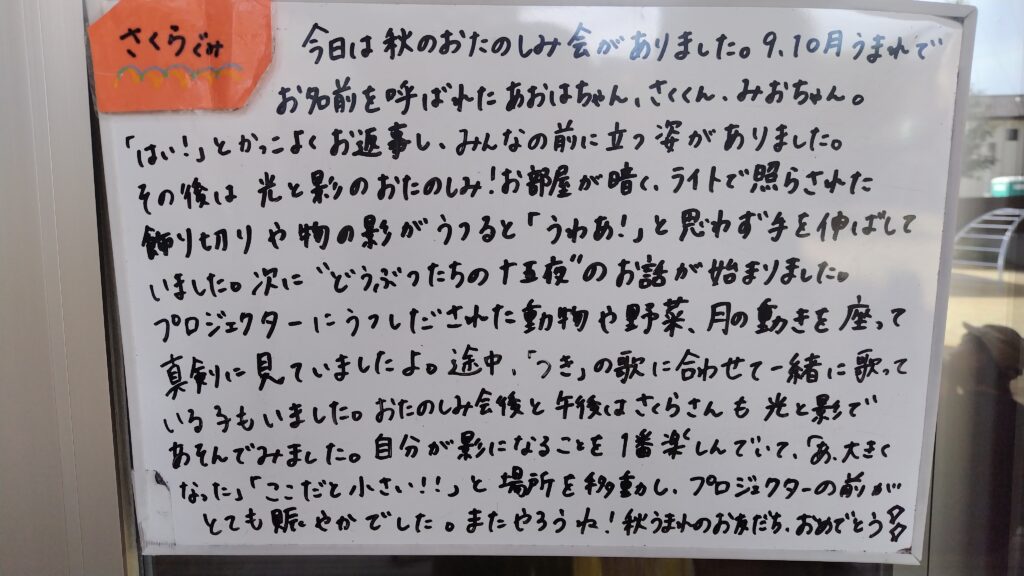 さくらぐみ
今日は秋のおたのしみ会がありました。9、10月うまれで
お名前を呼ばれたあおはちゃん、さくくん、みおちゃん。
「はい!」とかっこよくお返事し、みんなの前に立つ姿がありました。
その後は光と影のおたのしみ!お部屋が暗く、ライトで照らされた
飾り切りや物の影がうつると「うわあ!」と思わず手を伸ばして
いました。次に"どうぶつたちの十五夜"のお話が始まりました。
プロジェクターにうつしだされた動物や野菜、月の動きを座って
真剣に見ていましたよ。途中、「つき」の歌に合わせて一緒に歌って
いる子もいました。おたのしみ会後と午後はさくらさんも光と影で
あそんでみました。自分が影になることを1番楽しんでいて、「あ、大きく
なった」「ここだと小さい!!」と場所を移動し、プロジェクターの前が
とても賑やかでした。またやろうね!秋うまれのお友だち、おめでとう